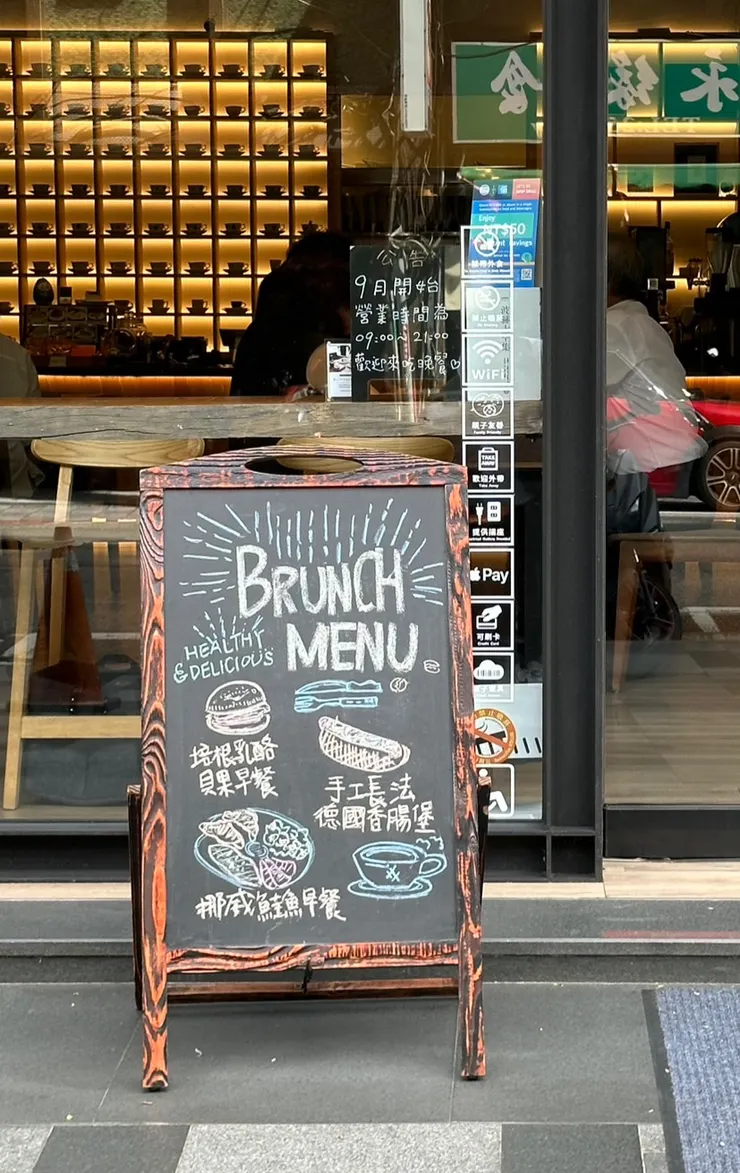 公告
9月開始
營業時間為
09:00~21:00
歡迎來吃晚餐♡
Enjoy
NT$50
禁帶外食
禁止吸菸
WiFi
親子友善
Family Friendly
TAKE AWAY
歡迎外帶
Take Away
提供插座
Pay
可刷卡
Credit Card
BRUNCH
MENU
HEALTHY
& DELICIOUS
培根乳酪
貝果早餐
手工長法
德國香腸堡
挪威鮭魚早餐